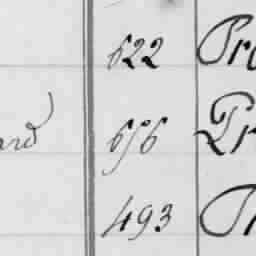 622 Pro
ard 656 Pr
493 Pr